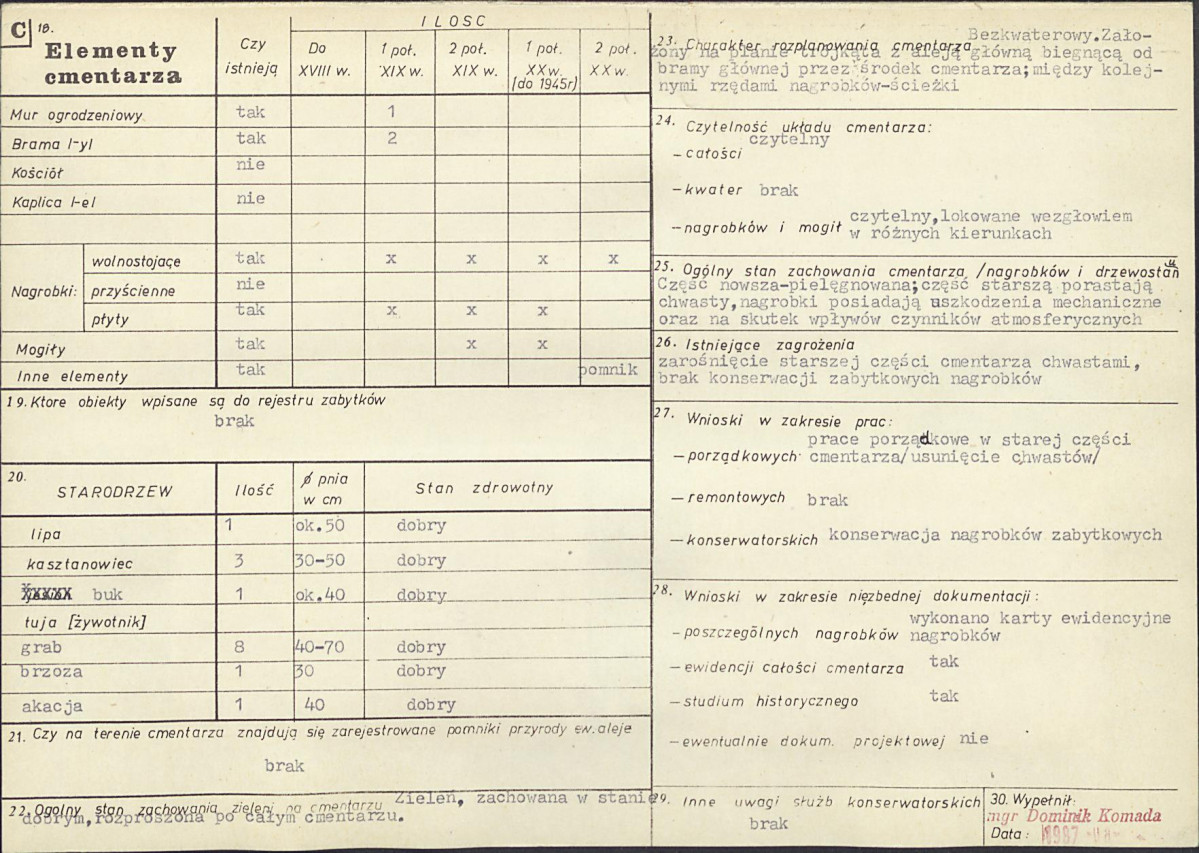 C 18.
Elementy
cmentarza
Czy
istnieją
ILOSC
Do
XVIII w.
1 poł.
XIX w.
2 poł.
XIX w.
1 poł.
XXw.
/do 1945r/
2 poł.
XX w.
Mur ogrodzeniowy tak 1
Brama /-y/ tak 2
Kościół nie
Kaplica /-e/ nie
Nagrobki:
wolnostojące tak x x x x
przyścienne nie
płyty tak x x x
Mogiły tak x x
Inne elementy tak pomnik
19. Ktore obiekty wpisane są do rejestru zabytków
brak
20.
STARODRZEW Ilość ø pnia
w cm Stan zdrowotny
lipa 1 ok.50 dobry
kasztanowiec 3 30-50 dobry
buk 1 ok.40 dobry
tuja [żywotnik]
grab 8 40-70 dobry
brzoza 1 30 dobry
akacja 1 40 dobry
21. Czy na terenie cmentarza znajdują się zarejestrowane pomniki przyrody ew. aleje
brak
22. Ogolny stan zachowania zieleni na cmentarzu Zieleń, zachowana w stanie
dobrym,rozproszona po całym cmentarzu.
23. Charakter rozplanowania cmentarza Bezkwaterowy.Zało-
żony na planie trójkąta z aleją główną biegnącą od
bramy głównej przez środek cmentarza;między kolej-
nymi rzędami nagrobków-ścieżki
24. Czytelność układu cmentarza:
– całości czytelny
– kwater brak
– nagrobków i mogił czytelny,lokowane wezgłowiem
w różnych kierunkach
25. Ogólny stan zachowania cmentarza /nagrobków i drzewostanu
Część nowsza-pielęgnowana;część starszą porastają
chwasty,nagrobki posiadają uszkodzenia mechaniczne
oraz na skutek wpływów czynników atmosferycznych
26. Istniejące zagrożenia
zarośnięcie starszej części cmentarza chwastami,
brak konserwacji zabytkowych nagrobków
27. Wnioski w zakresie prac:
prace porządkowe w starej części
– porządkowych cmentarza/usunięcie chwastów/
– remontowych brak
– konserwatorskich konserwacja nagrobków zabytkowych
28. Wnioski w zakresie niezbednej dokumentacji:
wykonano karty ewidencyjne
– poszczególnych nagrobków nagrobków
– ewidencji całości cmentarza tak
– studium historycznego tak
– ewentualnie dokum. projektowej nie
29. Inne uwagi służb konserwatorskich
brak
30. Wypełnił:
mgr Dominik Komada
Data: 1987